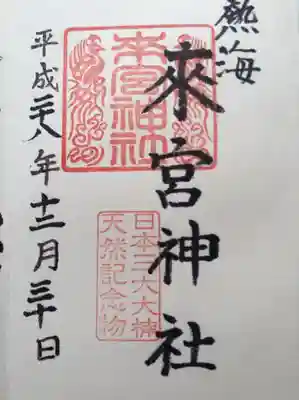 熱海
來宮神社
來宮神社
日本三大大楠
天然記念物
平成二十八年十二月三十日